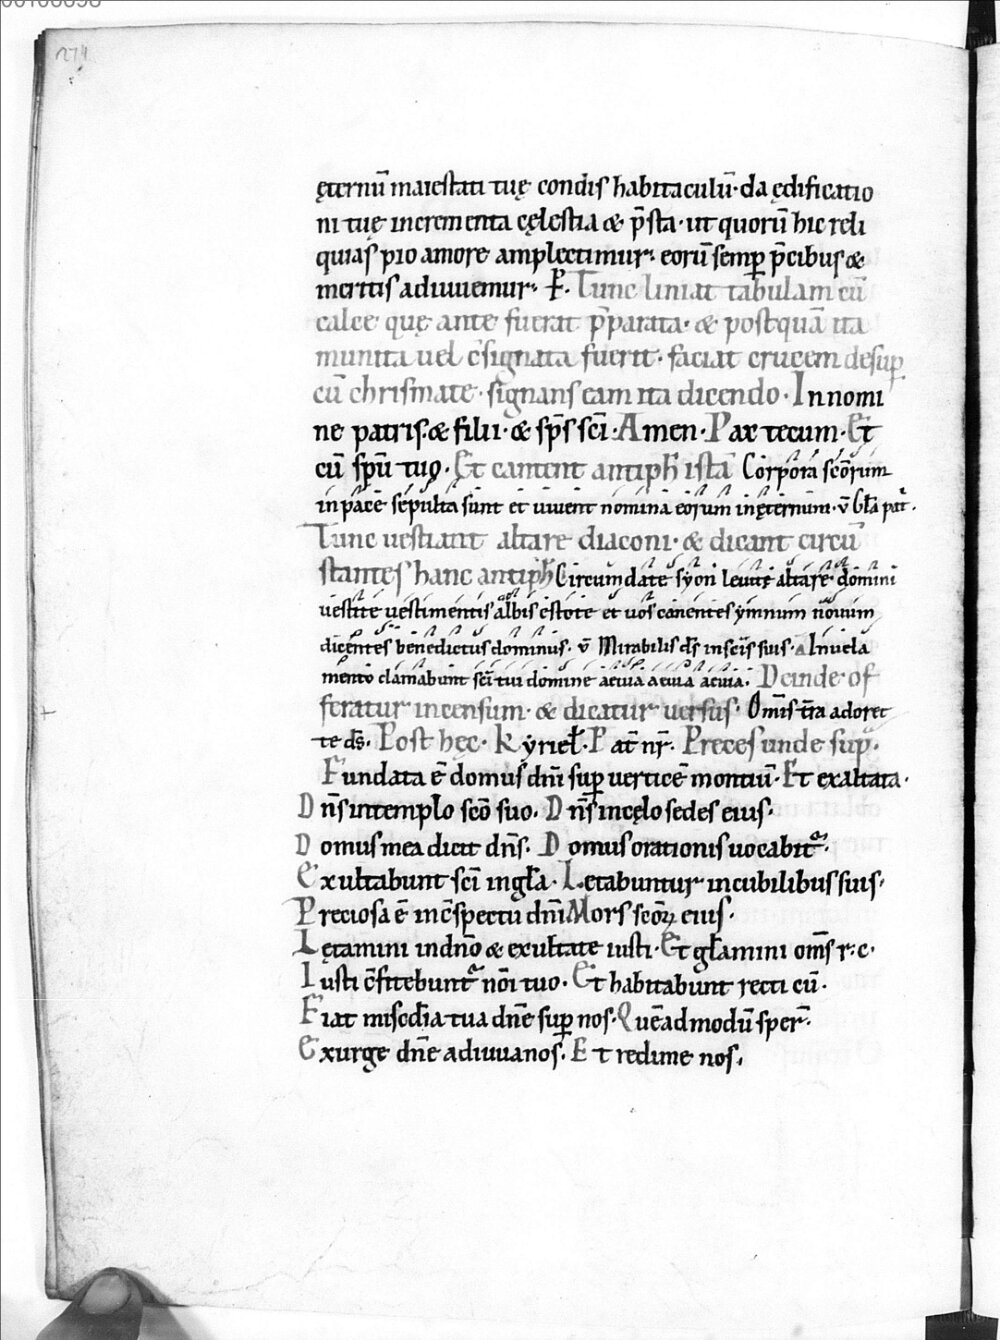 274
ęternū maiestati tuę condis habitaculū· da ędificatio
ni tuę incrementa cęlestia & p̄sta· ut quorū hic reli
quias pio amore amplectimur· eorū semꝑ p̄cibus &
meritis adiuuemur· Tunc liniat tabulam cū
calce quę ante fuerat p̄parata· & postquā ita
munita uel c̄signata fuerit· faciat crucem desuꝑ
cū chrismate· signans eam ita dicendo· In nomi
ne patris· & filii· & sp̄s sc̄i· Amen· Pax tecum· Et
cū sp̄u tuo· Et cantent antiph̄ istā Corpora sc̄orum
in pace sepulta sunt et uiuent nomina eorum in ęternum· v̄ Gl̄a pat̄·
Tunc uestiant altare diaconi· & dicant circū
stantes hanc antiph̄ Circumdate syon leuitę altare domini
uestite uestimentis albis estote et uos canentes ymnum nouum
dicentes benedictus dominus· v̄ Mirabilis ds̄ in sc̄is suis· A In uela
mento clamabunt sc̄i tui domine aeuia aeuia aeuia· Deinde of
feratur incensum· & dicatur uersus· Om̄is t̄ra adoret
te ds̄· Post hęc· Kyriel̄· Pat̄ nr̄· Preces unde sup̄·
Fundata ē domus dn̄i suꝑ uerticē montiū· Et exaltata·
Dn̄s in templo sc̄o suo· Dn̄s in cęlo sedes eius·
Domus mea dicit dn̄s· Domus orationis uocabit᷑·
Exultabunt sc̄i in gl̄a· Letabuntur in cubilibus suis·
Preciosa ē in c̄spectu dn̄i Mors sc̄oꝝ eius·
Lętamini in dn̄o & exultate iusti· Et gl̄amini om̄s r· c·
Iusti c̄fitebunt᷑ nōi tuo· Et habitabunt recti cū·
Fiat misc̄dia tua dn̄e suꝑ nos· Quēadmodū sper̄·
Exurge dn̄e adiuua nos· Et redime nos·